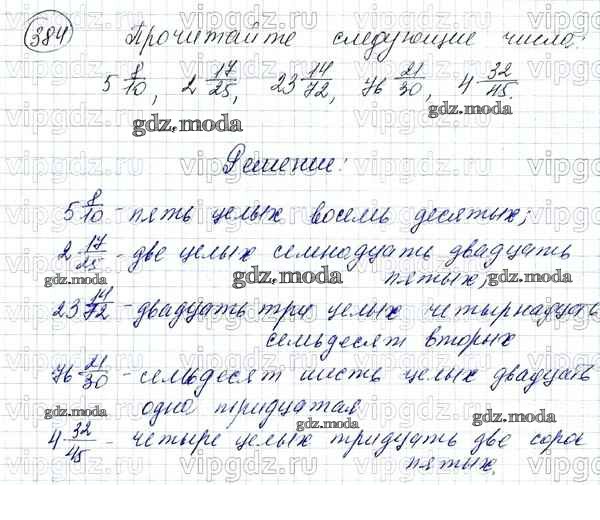 384 Прочитайте следующие числа:
5 8/10, 2 17/25, 23 14/72, 76 21/30, 4 32/45.
Решение:
5 8/10 - пять целых восемь десятых;
2 17/25 - две целых семнадцать двадцать
пятых;
23 14/72 - двадцать три целых четырнадцать
семьдесят вторых
76 21/30 - семьдесят шесть целых двадцать
одна тридцатая
4 32/45 - четыре целых тридцать две сорок
пятых.
vipgdz.ru
gdz.moda